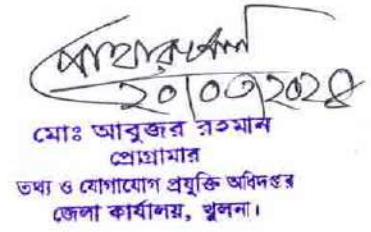 ২০/০৩/২০২৪
মোঃ আবুজর রহমান
প্রোগ্রামার
তথ্য ও যোগাযোগ প্রযুক্তি অধিদপ্তর
জেলা কার্যালয়, খুলনা।